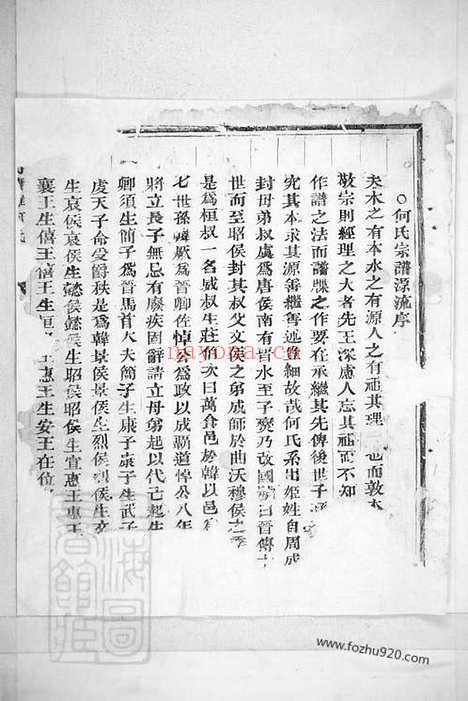 ○何氏宗譜源流序
夫木之有本水之有源人之有祖其理一也而敦本
敬宗則經理之大者先王深慮人忘其祖而不知
作譜之法而譜牒之作要在承繼其先俾後世子
究其本求其源善繼善述豈細故哉何氏系出姬姓自周成
封母弟叔虞為唐侯南有晋水至子燮乃改國號曰晉傳
世而至昭侯封其叔父文侯之弟成師於曲沃穆侯之
是為桓叔一名咸叔生莊 次曰萬食邑於韓以邑
七世孫韓厥為晉卿佐悼公為政以成覇道悼公八年
將立長子無忌有廢疾固辭請立母弟起以代亡起生
卿須生簡子為晉馬首大夫簡子生康子康子生武子
虔天子命受爵秩是為韓景侯景侯生烈侯侯生文
生哀侯哀侯生懿侯懿侯生昭侯昭侯生宣惠王惠王
襄王生僖王僖王生桓 惠王生安王在位
海圖
nayona.cn
www.fozhu920.com